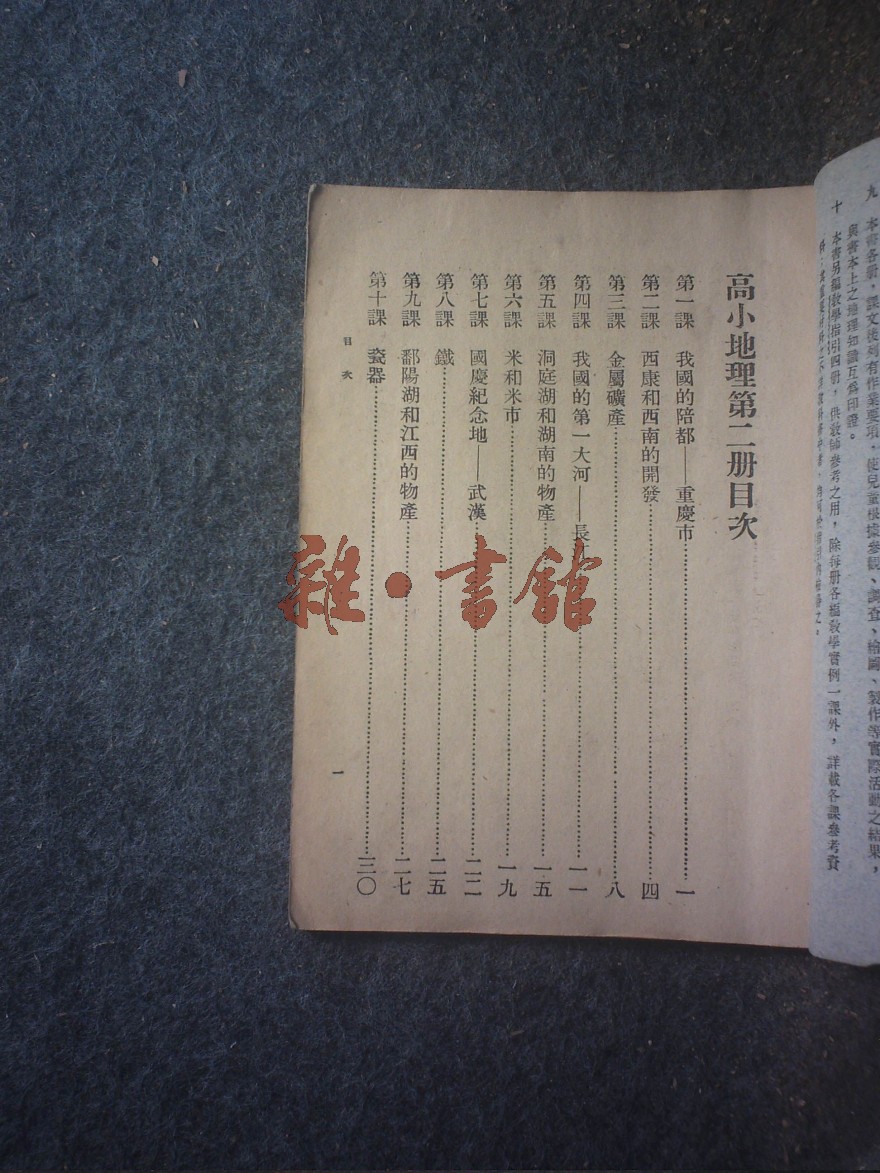 九 本書各册，課文後列有作業要項，使兒童根據參觀、調查、繪圖、製作等實際活動之結果，
與書本上之地理知識互爲印證。
十 本書另編教學指引四册，供敎師參考之用，除每册各編敎學實例一課外，詳載各課參考資
高小地理第二册目次
第一課 我國的陪都——重慶市 一
第二課 西康和西南的開發 四
第三課 金屬礦產 八
第四課 我國的第一大河——長 一一
第五課 洞庭湖和湖南的物產 一五
第六課 米和米市 一九
第七課 國慶紀念地——武漢 二二
第八課 鐵 二五
第九課 鄱陽湖和江西的物產 二七
第十課 瓷器 三〇
目次 一
雜·書館